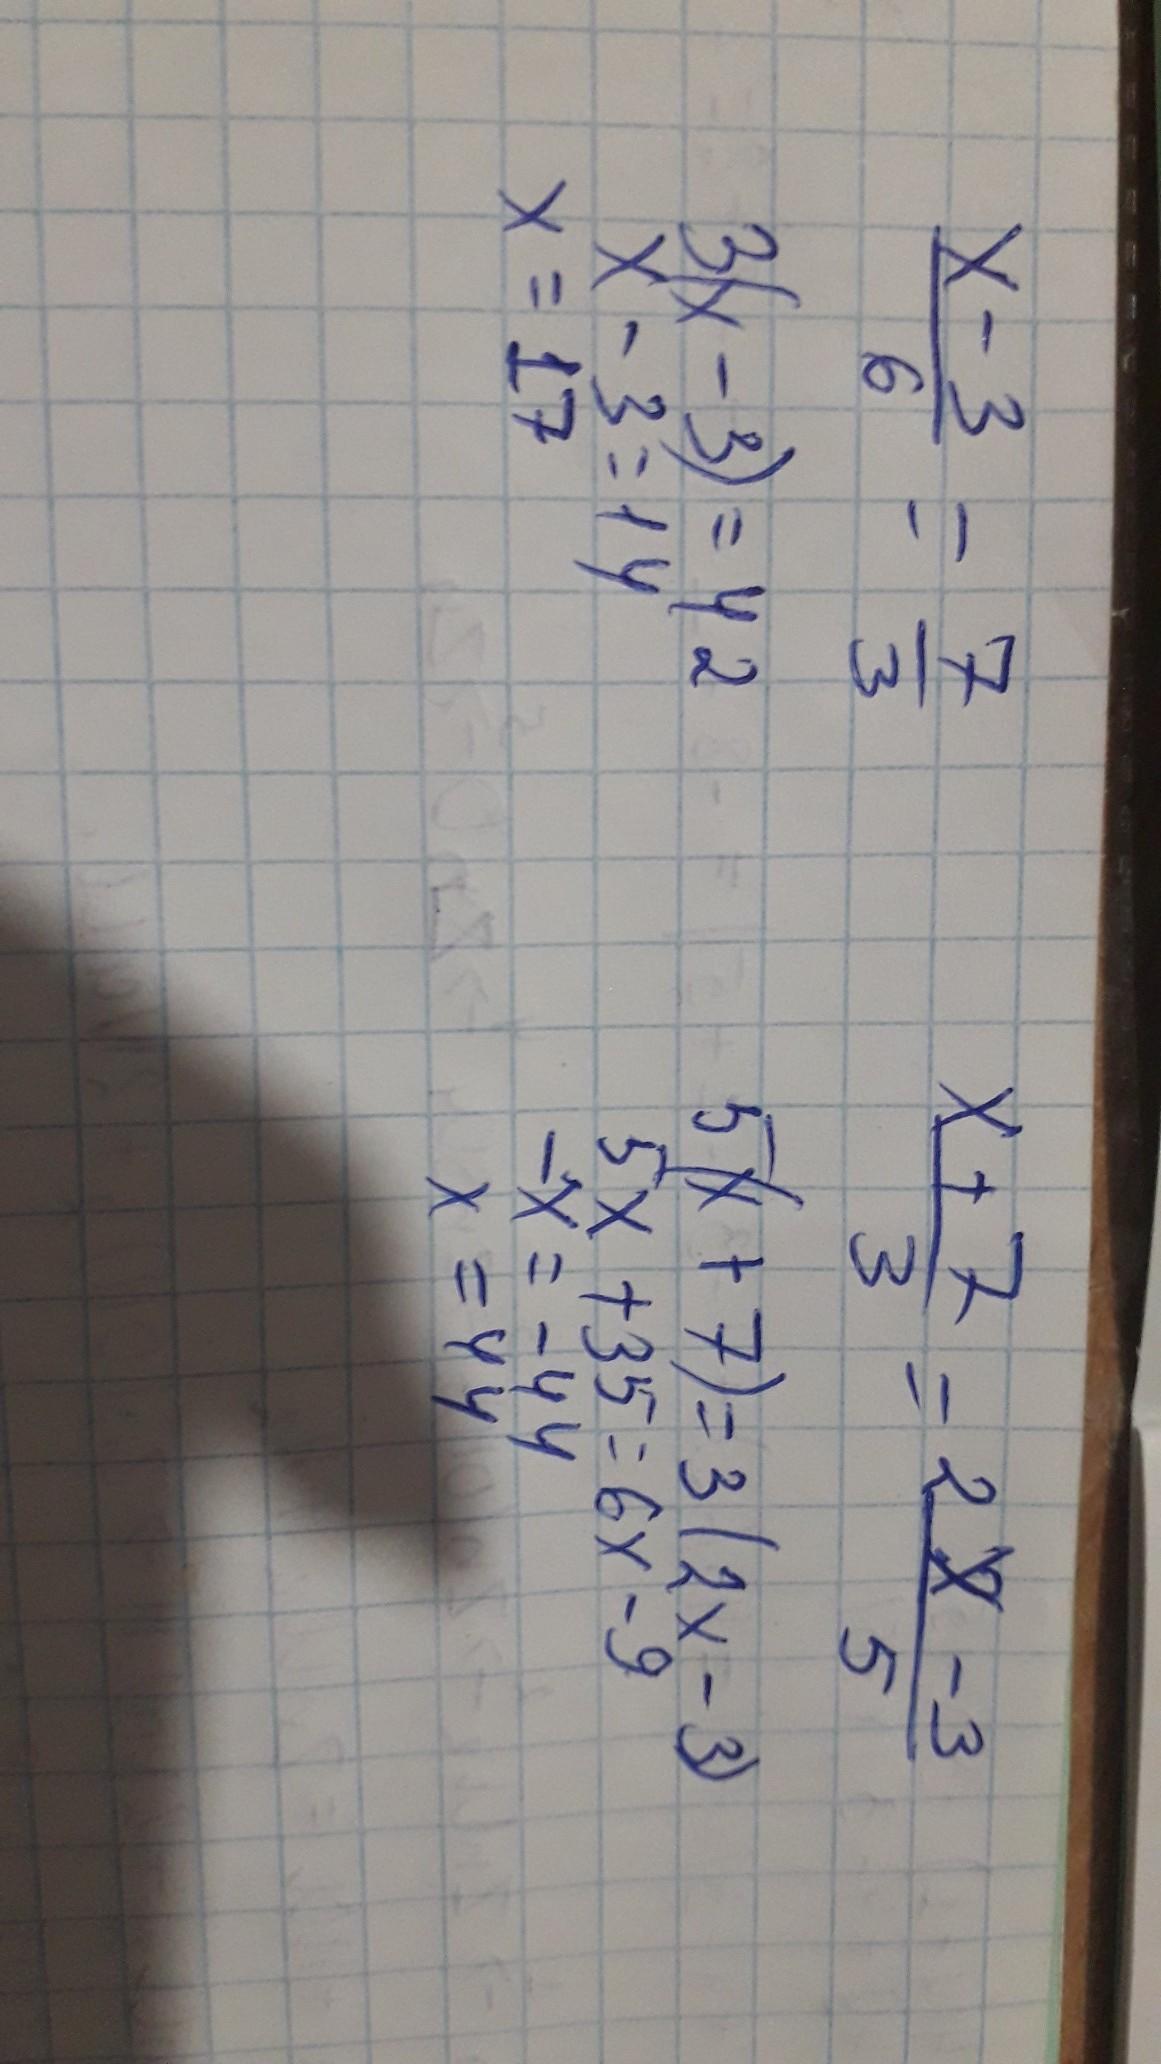 x-3/6 = 7/3
3(x-3)=42
x-3=14
x=17
x+7/3 = 2x-3/5
5(x+7)=3(2x-3)
5x+35=6x-9
-x=-44
x=44